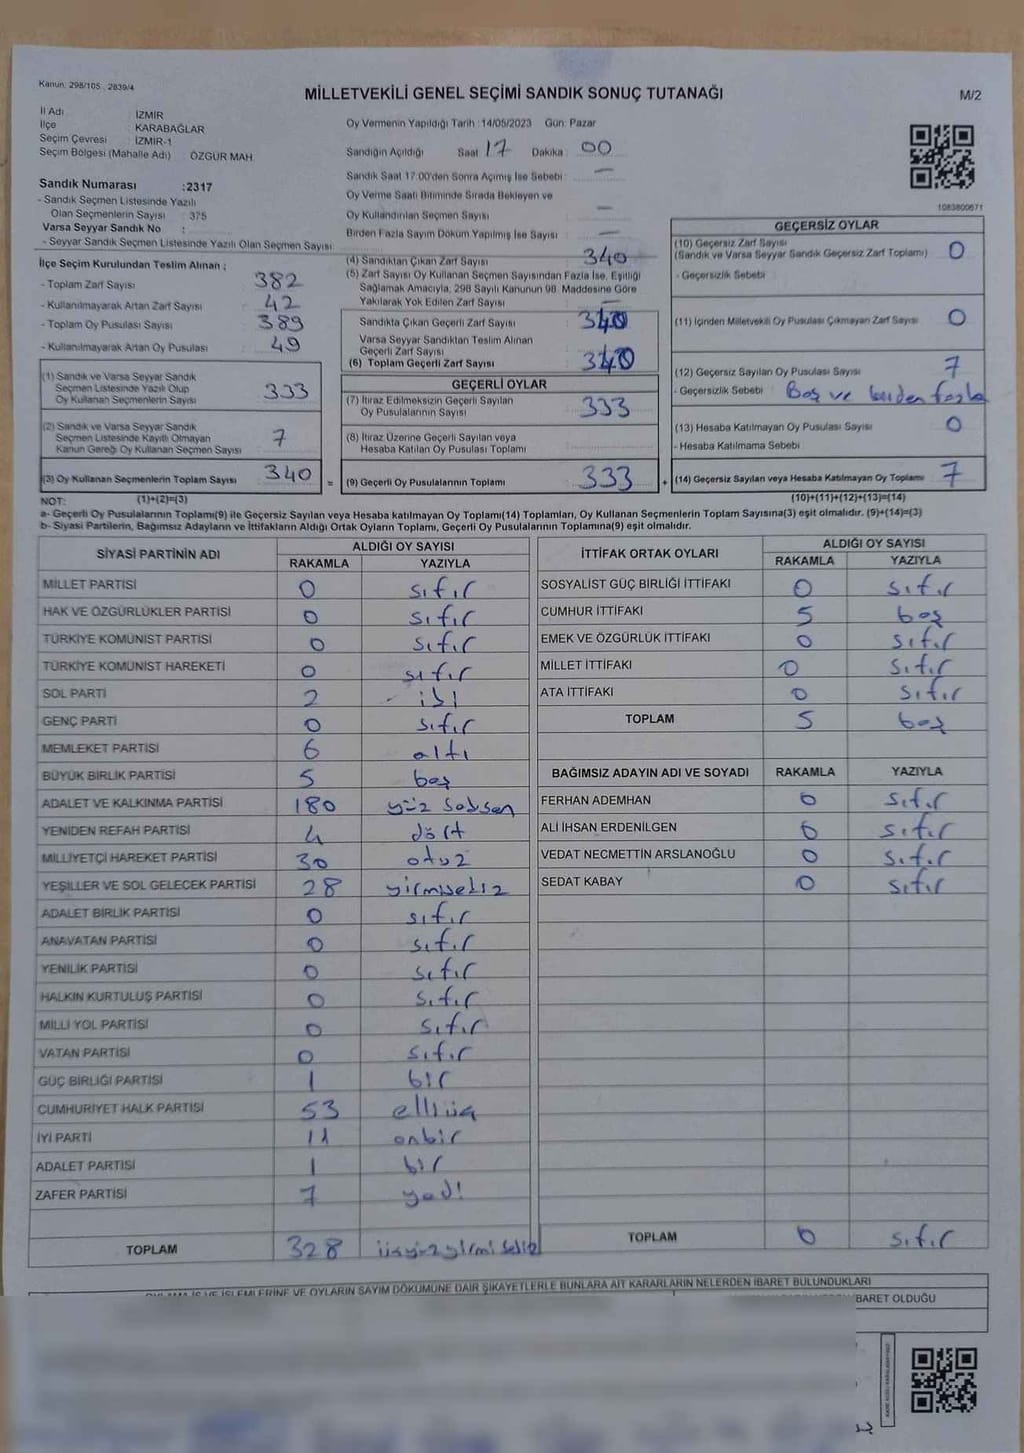 Kanun: 298/105 , 2839/4
MİLLETVEKİLİ GENEL SEÇİMİ SANDIK SONUÇ TUTANAĞI
M/2
İl Adı İZMİR
İlçe KARABAĞLAR
Seçim Çevresi İZMİR-1
Seçim Bölgesi (Mahalle Adı) : ÖZGÜR MAH
Sandık Numarası :2317
- Sandık Seçmen Listesinde Yazılı
Olan Seçmenlerin Sayısı : 375
Varsa Seyyar Sandık No :
- Seyyar Sandık Seçmen Listesinde Yazılı Olan Seçmen Sayısı:
Oy Vermenin Yapıldığı Tarih :14/05/2023 Gün: Pazar
Sandığın Açıldığı Saat 17 Dakika : 00
Sandık Saat 17:00'den Sonra Açımış İse Sebebi : —
Oy Verme Saati Bitiminde Sırada Bekleyen ve
Oy Kullandırılan Seçmen Sayısı : —
Birden Fazla Sayım Döküm Yapılmış İse Sayısı : —
1083800671
İlçe Seçim Kurulundan Teslim Alınan :
- Toplam Zarf Sayısı 382
- Kullanılmayarak Artan Zarf Sayısı 42
- Toplam Oy Pusulası Sayısı 389
- Kullanılmayarak Artan Oy Pusulası 49
(1) Sandık ve Varsa Seyyar Sandık
Seçmen Listesinde Yazılı Olup
Oy Kullanan Seçmenlerin Sayısı 333
(2) Sandık ve Varsa Seyyar Sandık
Seçmen Listesinde Kayıtlı Olmayan
Kanun Gereği Oy Kullanan Seçmen Sayısı 7
(3) Oy Kullanan Seçmenlerin Toplam Sayısı 340
(4) Sandıktan Çıkan Zarf Sayısı : 340
(5) Zarf Sayısı Oy Kullanan Seçmen Sayısından Fazla İse, Eşitliği
Sağlamak Amacıyla, 298 Sayılı Kanunun 98. Maddesine Göre
Yakılarak Yok Edilen Zarf Sayısı : —
Sandıkta Çıkan Geçerli Zarf Sayısı : 340
Varsa Seyyar Sandıktan Teslim Alınan
Geçerli Zarf Sayısı
(6) Toplam Geçerli Zarf Sayısı : 340
GEÇERLİ OYLAR
(7) İtiraz Edilmeksizin Geçerli Sayılan
Oy Pusulalarının Sayısı : 333
(8) İtiraz Üzerine Geçerli Sayılan veya
Hesaba Katılan Oy Pusulası Toplamı
= (9) Geçerli Oy Pusulalarının Toplamı : 333
GEÇERSİZ OYLAR
(10) Geçersiz Zarf Sayısı
(Sandık ve Varsa Seyyar Sandık Geçersiz Zarf Toplamı) 0
- Geçersizlik Sebebi
(11) İçinden Milletvekili Oy Pusulası Çıkmayan Zarf Sayısı 0
(12) Geçersiz Sayılan Oy Pusulası Sayısı 7
- Geçersizlik Sebebi : Boş ve birden fazla
(13) Hesaba Katılmayan Oy Pusulası Sayısı 0
- Hesaba Katılmama Sebebi
+ (14) Geçersiz Sayılan veya Hesaba Katılmayan Oy Toplamı 7
NOT: (1)+(2)=(3)
(10)+(11)+(12)+(13)=(14)
a- Geçerli Oy Pusulalarının Toplamı(9) ile Geçersiz Sayılan veya Hesaba katılmayan Oy Toplamı(14) Toplamları, Oy Kullanan Seçmenlerin Toplam Sayısına(3) eşit olmalıdır. (9)+(14)=(3)
b- Siyasi Partilerin, Bağımsız Adayların ve İttifakların Aldığı Ortak Oyların Toplamı, Geçerli Oy Pusulalarının Toplamına(9) eşit olmalıdır.
SİYASİ PARTİNİN ADI ALDIĞI OY SAYISI
RAKAMLA YAZIYLA
MİLLET PARTİSİ 0 sıfır
HAK VE ÖZGÜRLÜKLER PARTİSİ 0 sıfır
TÜRKİYE KOMÜNİST PARTİSİ 0 sıfır
TÜRKİYE KOMÜNİST HAREKETİ 0 sıfır
SOL PARTİ 2 iki
GENÇ PARTİ 0 sıfır
MEMLEKET PARTİSİ 6 altı
BÜYÜK BİRLİK PARTİSİ 5 beş
ADALET VE KALKINMA PARTİSİ 180 yüz seksen
YENİDEN REFAH PARTİSİ 4 dört
MİLLİYETÇİ HAREKET PARTİSİ 30 otuz
YEŞİLLER VE SOL GELECEK PARTİSİ 28 yirmisekiz
ADALET BİRLİK PARTİSİ 0 sıfır
ANAVATAN PARTİSİ 0 sıfır
YENİLİK PARTİSİ 0 sıfır
HALKIN KURTULUŞ PARTİSİ 0 sıfır
MİLLİ YOL PARTİSİ 0 sıfır
VATAN PARTİSİ 0 sıfır
GÜÇ BİRLİĞİ PARTİSİ 1 bir
CUMHURİYET HALK PARTİSİ 53 elliüç
İYİ PARTİ 11 onbir
ADALET PARTİSİ 1 bir
ZAFER PARTİSİ 7 yedi
TOPLAM 328 üçyüzyirmi sekiz
İTTİFAK ORTAK OYLARI ALDIĞI OY SAYISI
RAKAMLA YAZIYLA
SOSYALİST GÜÇ BİRLİĞİ İTTİFAKI 0 sıfır
CUMHUR İTTİFAKI 5 beş
EMEK VE ÖZGÜRLÜK İTTİFAKI 0 sıfır
MİLLET İTTİFAKI 0 sıfır
ATA İTTİFAKI 0 sıfır
TOPLAM 5 beş
BAĞIMSIZ ADAYIN ADI VE SOYADI RAKAMLA YAZIYLA
FERHAN ADEMHAN 0 sıfır
ALİ İHSAN ERDENİLGEN 0 sıfır
VEDAT NECMETTİN ARSLANOĞLU 0 sıfır
SEDAT KABAY 0 sıfır
TOPLAM 0 sıfır
VE OYLARIN SAYIM DÖKÜMÜNE DAİR ŞİKAYETLERLE BUNLARA AİT KARARLARIN NELERDEN İBARET BULUNDUKLARI
BARET OLDUĞU